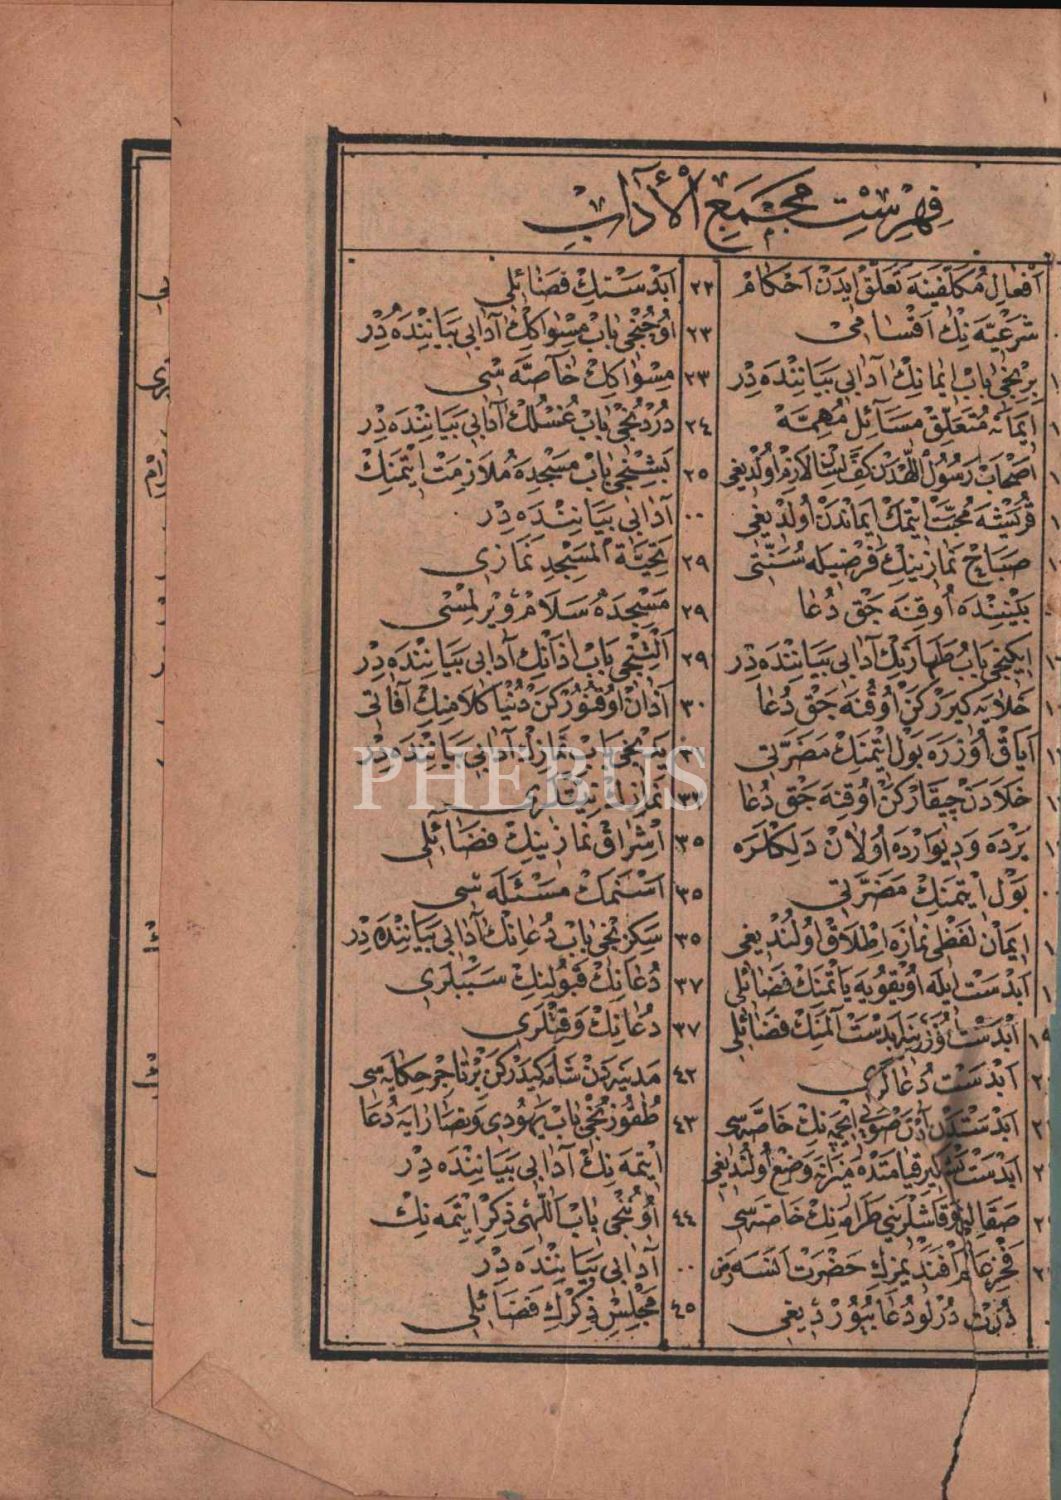 فِهْرِسْتِ مَجْمَعِ الْأٰدَابِ
اَفْعَالِ مُكَلَّفِينَه تَعَلُّقْ ايدَنْ اَحْكَامْ
شَرْعِيَّه نِكْ اَقْسَامى
بِرِنْجى بَابْ ايمَانِكْ آدَابى بَيَانِنْدَه دِرْ
ايمَانَه مُتَعَلِّقْ مَسَآئِلِ مُهِمَّه
اَصْحَابِ رَسُولُ اللّٰهدَنْ كَفِّ لِسَان لَازِمْ اُولْدِيغى
قُرَيْشَه مُحَبَّتْ ايتْمَكْ ايمَانْدَنْ اُولْدِيغى
صَبَاحْ نَمَازِينِكْ فَرْضِيلَه سُنَّتى
بَيْنِنْدَه اُوقُنَه جَقْ دُعَا
ايكِنْجى بَابْ طَهَارَتِكْ آدَابى بَيَانِنْدَه دِرْ
خَلَايَه كيرَرْكَنْ اُوقُنَه جَقْ دُعَا
اَيَاقْ اُوزَرَه بَوْل ايتْمَنِكْ مَضَرَّتى
خَلَادَنْ چِيقَارْكَنْ اُوقُنَه جَقْ دُعَا
يَرْدَه وَدِيوَارْدَه اُولَانْ دَلِكْلَرَه
بَوْل ايتْمَنِكْ مَضَرَّتى
ايمَانْ لَفْظى نَمَازَه اِطْلَاقْ اُولُنْدِيغى
اَبْدَسْت ايلَه اُويْقُويَه يَاتْمَنِكْ فَضَائِلى
اَبْدَسْت اُوزَرِينَه اَبْدَسْت آلْمَنِكْ فَضَائِلى ١٩
اَبْدَسْت دُعَالَرى
اَبْدَسْتْدَنْ آرْتَنْ صُويى ايچْمَه نِكْ خَاصَّه سى
اَبْدَسْت قِيَامَتْدَه مِيزَانَه وَضِعْ اُولُنْدِيغى
صَقَالِ وَقَاشْلَرينى طَرَامَه نِكْ خَاصَّه سى
فَخْرِ عَالَمْ اَفَنْدِيمِزِكْ حَضْرَتْ اَنَسَه رض
دُرْتْ دُرْلُو دُعَا بُيُورْدِيغى
٢٢ اَبْدَسْتِكْ فَضَائِلى
٢٣ اُوچُنْجى بَابْ مِسْوَاكِكْ آدَابى بَيَانِنْدَه دِرْ
٢٣ مِسْوَاكِكْ خَاصَّه سى
٢٤ دُرْدُنْجى بَابْ غُسْلُكْ آدَابى بَيَانِنْدَه دِرْ
٢٥ بَشِنْجى بَابْ مَسْجِدَه مُلَازِمَتْ ايتْمَنِكْ
٠٠ آدَابى بَيَانِنْدَه دِرْ
٢٩ تَحِيَّةُ الْمَسْجِدِ نَمَازى
٢٩ مَسْجِدَه سَلَامْ وِيرِلْمَسى
٢٩ اَلْتِنْجى بَابْ اَذَانِكْ آدَابى بَيَانِنْدَه دِرْ
٣٠ اَذَانْ اُوقُنُورْكَنْ دُنْيَا كَلَامِنِكْ آفَاتى
يَدِنْجى بَابْ نَمَازِكْ آدَابى بَيَانِنْدَه دِرْ
نَمَازِكْ نِيَّتْلَرى
٣٥ اِشْرَاقْ نَمَازِينِكْ فَضَائِلى
٣٥ اَسْنَمَكْ مَسْئَلَه سى
٣٥ سَكِزِنْجى بَابْ دُعَانِكْ آدَابى بَيَانِنْدَه دِرْ
٣٧ دُعَانِكْ قَبُولِنِكْ سَبَبْلَرى
٣٧ دُعَانِكْ وَقِتْلَرى
٤٢ مَدِينَه دَنْ شَامَه كيدَرْكَنْ بِرْ تَاجِرْ حِكَايَه سى
٤٣ طُقُوزُنْجى بَابْ يَهُودى وَنَصَارَايَه دُعَا
ايتْمَه نِكْ آدَابى بَيَانِنْدَه دِرْ
٤٤ اُونُنْجى بَابْ اَللّٰهى ذِكْر ايتْمَه نِكْ
٠٠ آدَابى بَيَانِنْدَه دِرْ
٤٥ مَجْلِسِ ذِكْرِكْ فَضَائِلى
PHEBUS